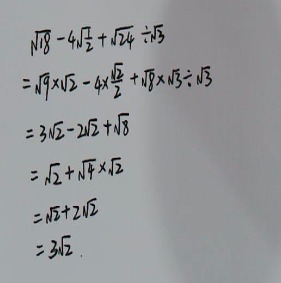 √18 - 4√1/2 + √24 ÷ √3
= √9 × √2 - 4 × √2/2 + √8 × √3 ÷ √3
= 3√2 - 2√2 + √8
= √2 + √4 × √2
= √2 + 2√2
= 3√2 .